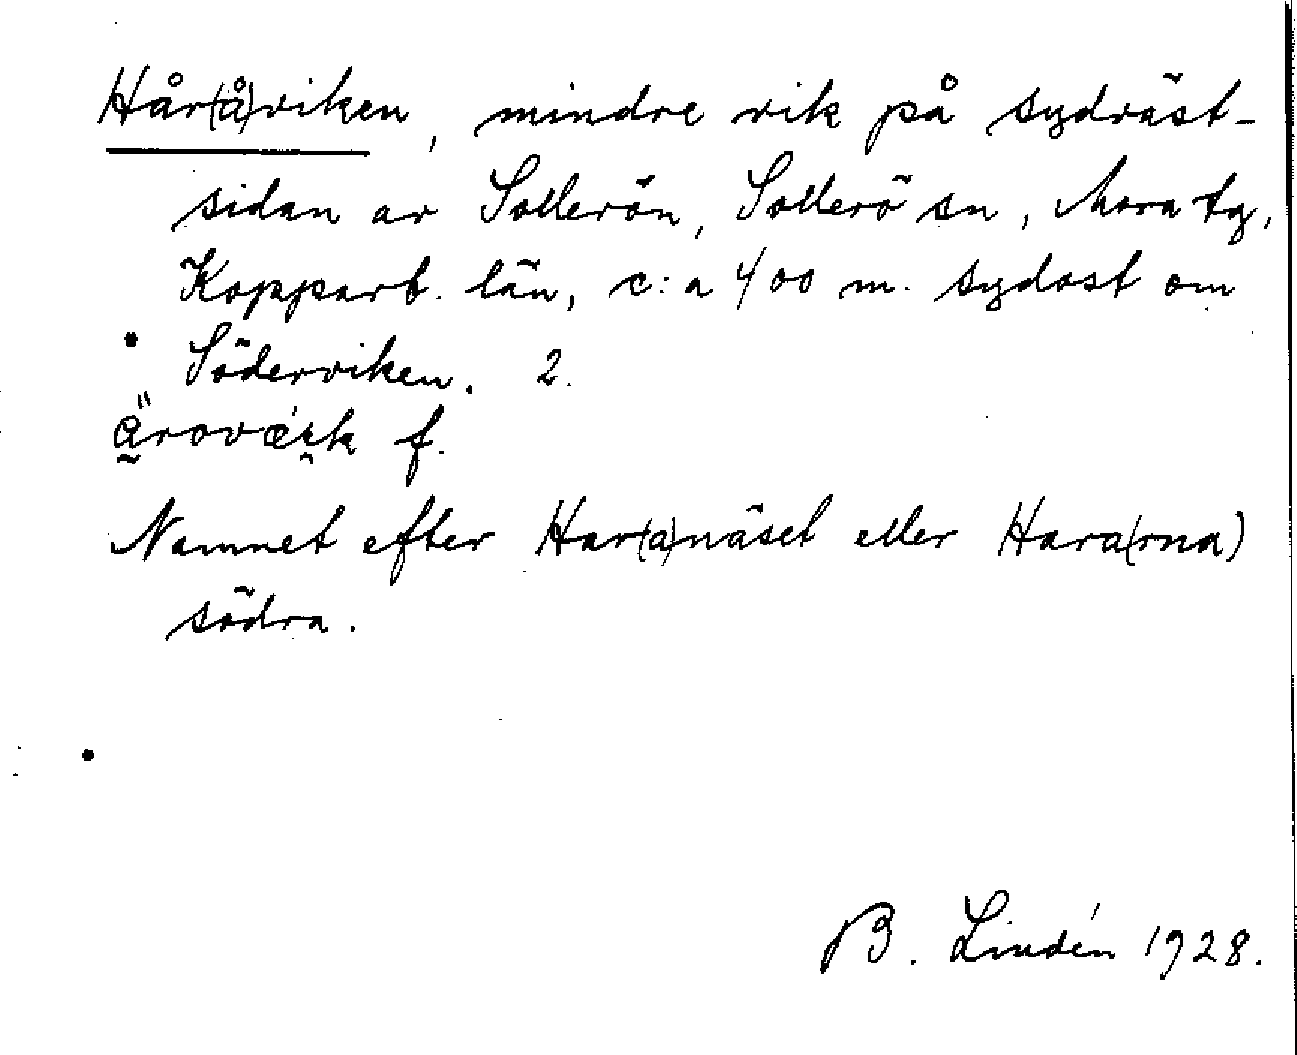 Hår(å)viken, mindre vik på sydväst-
sidan av Sollerön, Sollerö sn, Mora tg,
Kopparb. län, c:a 400 m. sydost om
Söderviken. 2.
f.
Namnet efter Har(a)näset eller Hara(rna)
södra.
B. Lindén 1928.